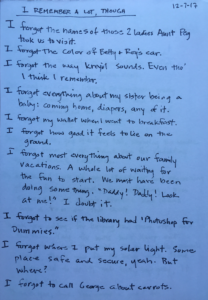 I REMEMBER A LOT, THOUGH
12-7-17
I forgot the names of those 2 ladies Aunt Peg
took us to visit.
I forgot The color of Betty & Roy's car.
I forgot the way krojl sounds. Even tho'
I think I remember.
I forgot everything about my sister being a
baby: coming home, diapers, any of it.
I forgot my wallet when I went to breakfast.
I forgot how good it feels to lie on the
ground.
I forgot most everything about our family
vacations. A whole lot of waiting for
the fun to start. We must have been
doing something. "Daddy! Daddy! Look
at me!" I doubt it.
I forgot to see if the library had "Photoshop for
Dummies."
I forgot where I put my solar light. Some
place safe and secure, yeah. But
where?
I forgot to call George about carrots.